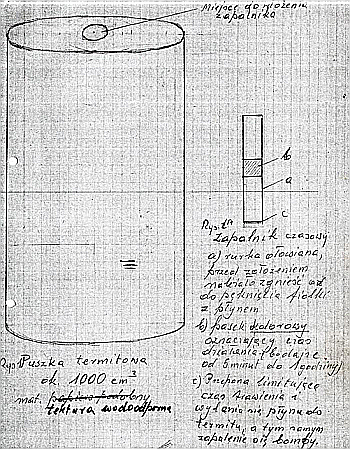 Miejsce do włożenia
zapalnika
Rys. 1A
Zapalnik czasowy
a) rurka ołowiana,
przed założeniem
należało zgnieść aż
do pęknięcia fiolki
z płynem
b) pasek kolorowy
oznaczający czas
działania (bodajże
od 5 minut do 1 godziny)
c) Przepona limitująca
czas trawienia i
wylania się płynu do
termitu, a tym samym
zapalenie się bomby.
b
a
c
Rys. 1 Puszka termitowa
ok. 1000 cm³
mat. papiero podobny
tektura wodoodporna